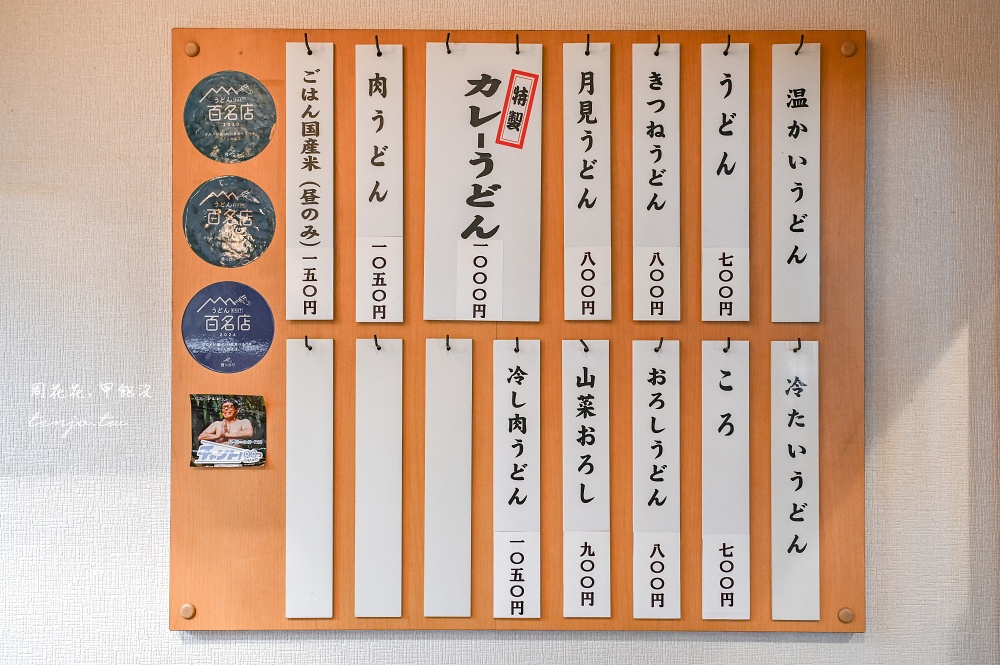 温かいうどん
うどん
七〇〇円
きつねうどん
八〇〇円
月見うどん
八〇〇円
特製
カレーうどん
一〇〇〇円
肉うどん
一〇五〇円
ごはん国産米(昼のみ)一五〇円
冷たいうどん
ころ
七〇〇円
おろしうどん
八〇〇円
山菜おろし
九〇〇円
冷し肉うどん
一〇五〇円
うどん EAST
百名店
うどん EAST
百名店
うどん EAST
百名店
2024
食べログ
チャント!
周花花, 甲飽沒
tenjo.tw